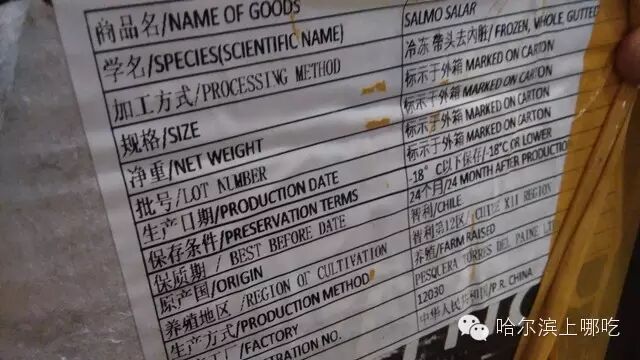 商品名/NAME OF GOODS
学名/SPECIES(SCIENTIFIC NAME) SALMO SALAR
加工方式/PROCESSING METHOD 冷冻 带头去内脏/ FROZEN, WHOLE, GUTTED
规格/SIZE 标示于外箱 MARKED ON CARTON
净重/NET WEIGHT 标示于外箱 MARKED ON CARTON
批号/LOT NUMBER 标示于外箱 MARKED ON CARTON
生产日期/PRODUCTION DATE 标示于外箱 MARKED ON CARTON
保存条件/PRESERVATION TERMS -18° C以下保存/-18°C OR LOWER
保质期 / BEST BEFORE DATE 24个月/24 MONTH AFTER PRODUCTION
原产国/ORIGIN 智利/CHILE
养殖地区 /REGION OF CULTIVATION 智利第12区/ CHILE XII REGION
生产方式/PRODUCTION METHOD 养殖/FARM RAISED
/FACTORY PESQUERA TORRES DEL PAINE LT
STRATION NO. 12030
中华人民共和国/P.R. CHINA
哈尔滨上哪吃